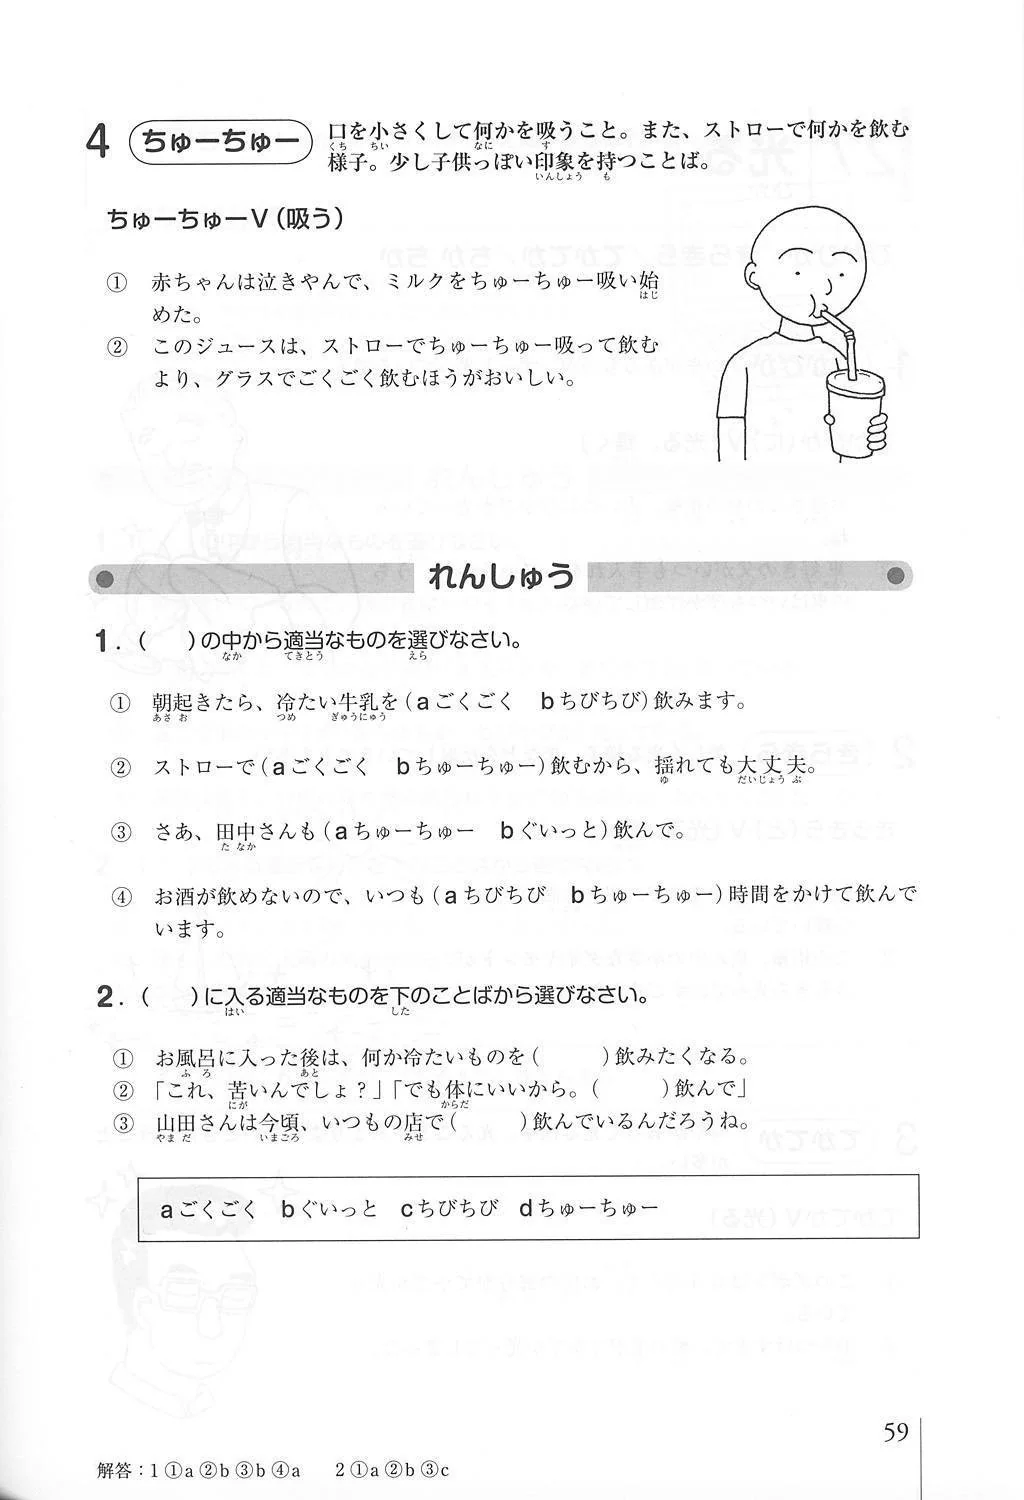 4 ちゅーちゅー 口を小さくして何かを吸うこと。また、ストローで何かを飲む
くち ちい なに す
様子。少し子供っぽい印象を持つことば。
いんしょう も
ちゅーちゅーV(吸う)
① 赤ちゃんは泣きやんで、ミルクをちゅーちゅー吸い始
はじ
めた。
② このジュースは、ストローでちゅーちゅー吸って飲む
より、グラスでごくごく飲むほうがおいしい。
れんしゅう
1.( )の中から適当なものを選びなさい。
なか てきとう えら
① 朝起きたら、冷たい牛乳を(aごくごく bちびちび)飲みます。
あさ お つめ ぎゅうにゅう
② ストローで(aごくごく bちゅーちゅー)飲むから、揺れても大丈夫。
ゆ だいじょうぶ
③ さあ、田中さんも(aちゅーちゅー bぐいっと)飲んで。
た なか
④ お酒が飲めないので、いつも(aちびちび bちゅーちゅー)時間をかけて飲んで
います。
2.( )に入る適当なものを下のことばから選びなさい。
はい した
① お風呂に入った後は、何か冷たいものを( )飲みたくなる。
ふ ろ あと
② 「これ、苦いんでしょ?」「でも体にいいから。( )飲んで」
にが からだ
③ 山田さんは今頃、いつもの店で( )飲んでいるんだろうね。
やま だ いまごろ みせ
aごくごく bぐいっと cちびちび dちゅーちゅー
59
解答:1①a②b③b④a 2①a②b③c